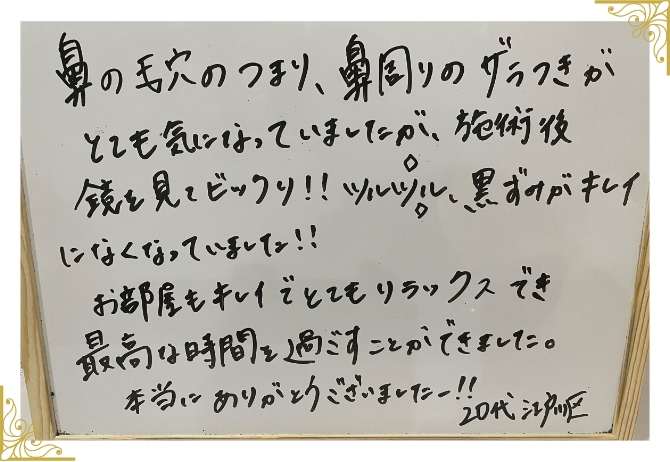 鼻の毛穴のつまり、鼻周りのザラつきが
とても気になっていましたが、施術後
鏡を見てビックリ!! ツルツル、黒ずみがキレイ
になくなっていました!!
お部屋もキレイでとてもリラックスでき
最高な時間を過ごすことができました。
本当にありがとうございましたー!!
20代 江戸川区